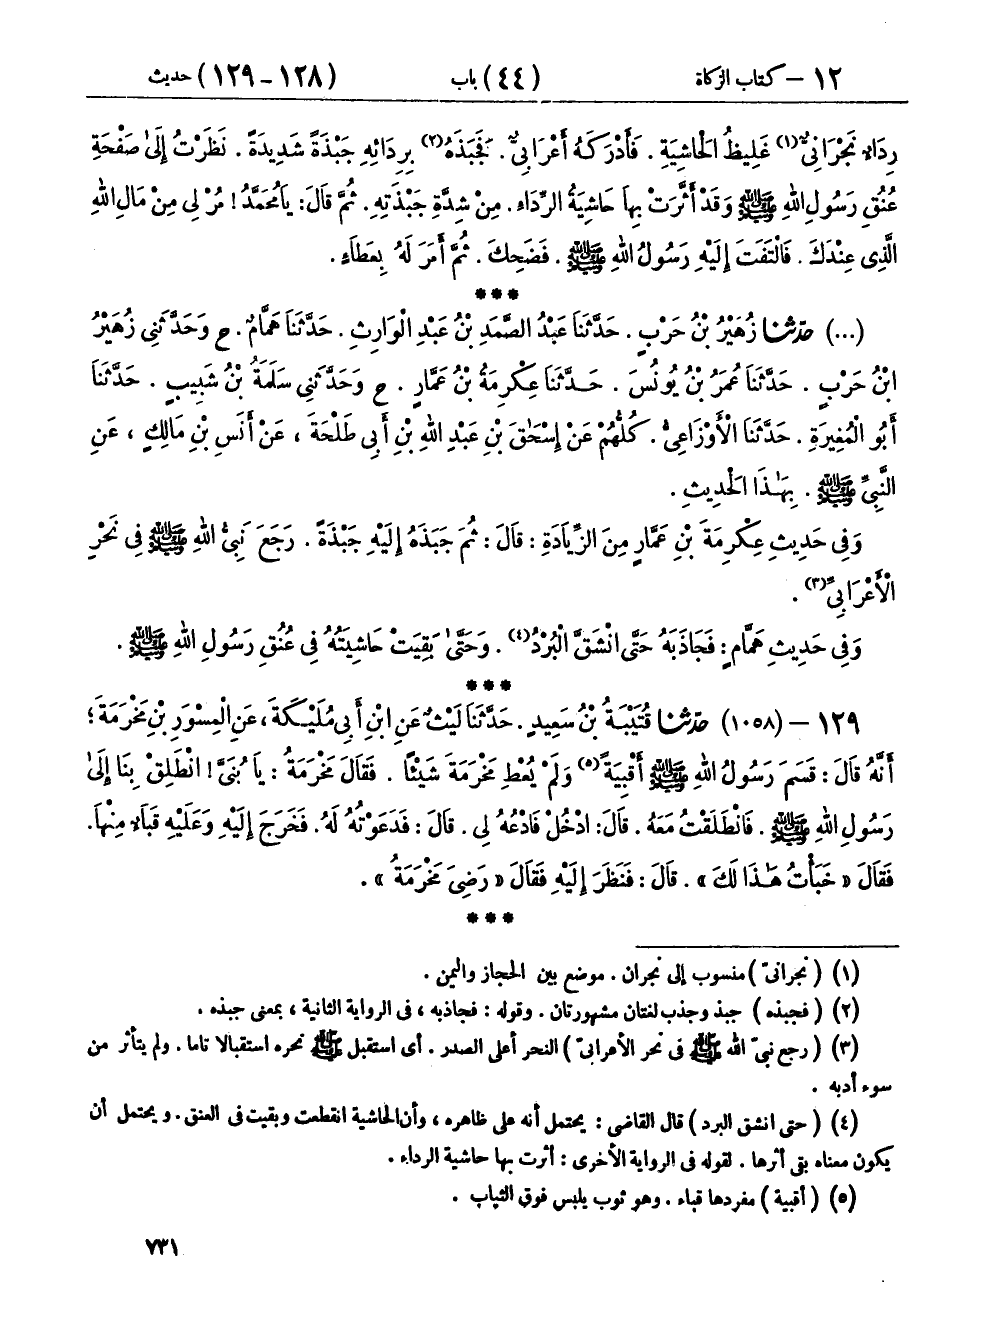 ١٢ – كتاب الزكاة (٤٤) باب (١٢٨ – ١٢٩) حديث
رِدَاءٌ نَجْرَانِيٌّ(١) غَلِيظُ الْحَاشِيَةِ . فَأَدْرَكَهُ أَعْرَابِيٌّ . فَجَبَذَهُ(٢) بِرِدَائِهِ جَبْذَةً شَدِيدَةً . نَظَرْتُ إِلَىٰ صَفْحَةِ
عُنُقِ رَسُولِ اللهِ ﷺ وَقَدْ أَثَّرَتْ بِهَا حَاشِيَةُ الرِّدَاءِ . مِنْ شِدَّةِ جَبْذَتِهِ . ثُمَّ قَالَ : يَا مُحَمَّدُ ! مُرْ لِي مِنْ مَالِ اللهِ
الَّذِي عِنْدَكَ . فَالْتَفَتَ إِلَيْهِ رَسُولُ اللهِ ﷺ . فَضَحِكَ . ثُمَّ أَمَرَ لَهُ بِعَطَاءٍ .
***
(...) حَدَّثَنَا زُهَيْرُ بْنُ حَرْبٍ . حَدَّثَنَا عَبْدُ الصَّمَدِ بْنُ عَبْدِ الْوَارِثِ . حَدَّثَنَا هَمَّامٌ . ح وَحَدَّثَنِي زُهَيْرُ
ابْنُ حَرْبٍ . حَدَّثَنَا عُمَرُ بْنُ يُونُسَ . حَدَّثَنَا عِكْرِمَةُ بْنُ عَمَّارٍ . ح وَحَدَّثَنِي سَلَمَةُ بْنُ شَبِيبٍ . حَدَّثَنَا
أَبُو الْمُغِيرَةِ . حَدَّثَنَا الْأَوْزَاعِيُّ . كُلُّهُمْ عَنْ إِسْحَٰقَ بْنِ عَبْدِ اللهِ بْنِ أَبِي طَلْحَةَ ، عَنْ أَنَسِ بْنِ مَالِكٍ ، عَنِ
النَّبِيِّ ﷺ . بِهَٰذَا الْحَدِيثِ .
وَفِي حَدِيثِ عِكْرِمَةَ بْنِ عَمَّارٍ مِنَ الزِّيَادَةِ : قَالَ : ثُمَّ جَبَذَهُ إِلَيْهِ جَبْذَةً . رَجَعَ نَبِيُّ اللهِ ﷺ فِي نَحْرِ
الْأَعْرَابِيِّ(٣) .
وَفِي حَدِيثِ هَمَّامٍ : فَجَاذَبَهُ حَتَّى انْشَقَّ الْبُرْدُ(٤) . وَحَتَّىٰ بَقِيَتْ حَاشِيَتُهُ فِي عُنُقِ رَسُولِ اللهِ ﷺ .
***
١٢٩ – (١٠٥٨) حَدَّثَنَا قُتَيْبَةُ بْنُ سَعِيدٍ . حَدَّثَنَا لَيْثٌ عَنِ ابْنِ أَبِي مُلَيْكَةَ ، عَنِ الْمِسْوَرِ بْنِ مَخْرَمَةَ ؛
أَنَّهُ قَالَ : قَسَمَ رَسُولُ اللهِ ﷺ أَقْبِيَةً(٥) وَلَمْ يُعْطِ مَخْرَمَةَ شَيْئًا . فَقَالَ مَخْرَمَةُ : يَا بُنَيَّ ! انْطَلِقْ بِنَا إِلَىٰ
رَسُولِ اللهِ ﷺ . فَانْطَلَقْتُ مَعَهُ . قَالَ : ادْخُلْ فَادْعُهُ لِي . قَالَ : فَدَعَوْتُهُ لَهُ . فَخَرَجَ إِلَيْهِ وَعَلَيْهِ قَبَاءٌ مِنْهَا .
فَقَالَ « خَبَأْتُ هَٰذَا لَكَ » . قَالَ : فَنَظَرَ إِلَيْهِ فَقَالَ « رَضِيَ مَخْرَمَةُ » .
***
(١) ( نجرانيّ ) منسوب إلى نجران . موضع بين الحجاز واليمن .
(٢) ( فجبذه ) جبذ وجذب لغتان مشهورتان . وقوله : فجاذبه ، فى الرواية الثانية ، بمعنى جبذه .
(٣) ( رجع نبيّ الله ﷺ فى نحر الأعرابيّ ) النحر أعلى الصدر . أى استقبل ﷺ نحره استقبالا تاما . ولم يتأثر من
سوء أدبه .
(٤) ( حتى انشق البرد ) قال القاضى : يحتمل أنه على ظاهره ، وأن الحاشية انقطعت وبقيت فى العنق . ويحتمل أن
يكون معناه بقى أثرها . لقوله فى الرواية الأخرى : أثرت بها حاشية الرداء .
(٥) ( أقبية ) مفردها قباء . وهو ثوب يلبس فوق الثياب .
٧٣١